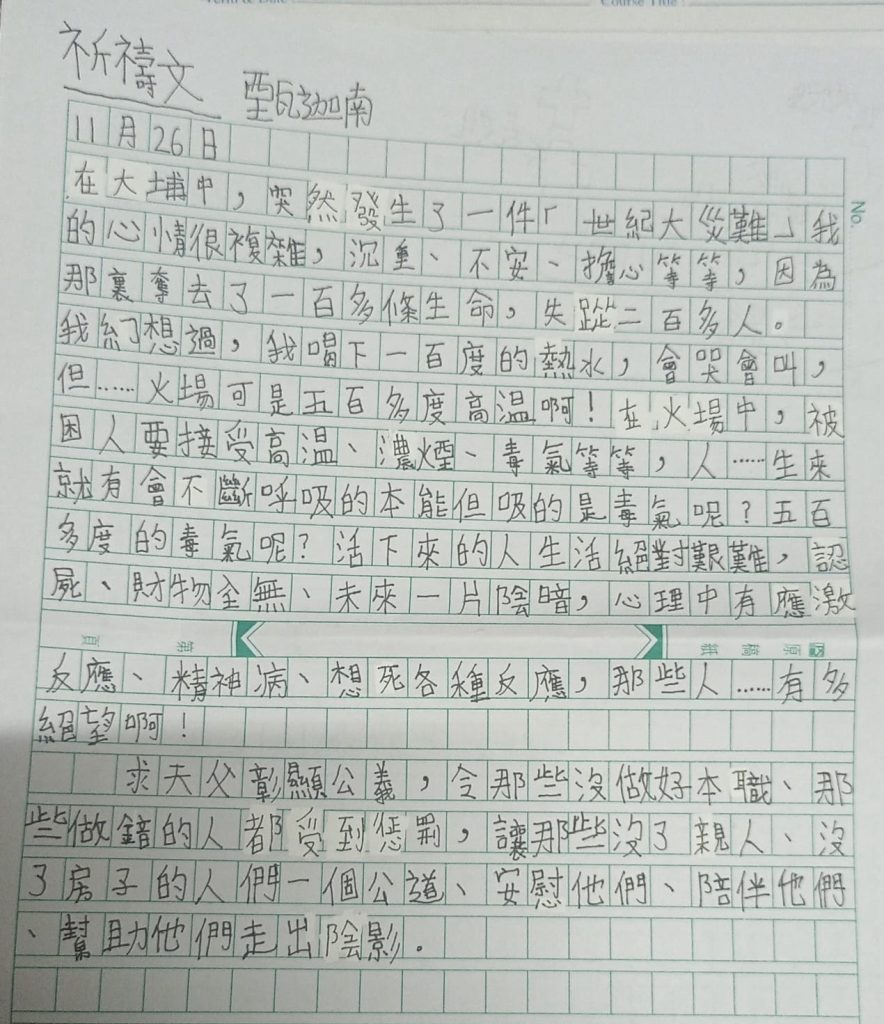 Course Title :
祈禱文 甄泇南
11月26日
No.
在大埔中，突然發生了一件「世紀大災難」我
的心情很複雜，沉重、不安、擔心等等，因為
那裏奪去了一百多條生命，失蹤二百多人。
我幻想過，我喝下一百度的熱水，會哭會叫，
但……火場可是五百多度高溫啊！在火場中，被
困人要接受高溫、濃煙、毒氣等等，人……生來
就有會不斷呼吸的本能但吸的是毒氣呢？五百
多度的毒氣呢？活下來的人生活絕對艱難，認
屍、財物全無、未來一片陰暗，心理中有應激
第 頁 原稿紙
反應、精神病、想死各種反應，那些人……有多
絕望啊！
求天父彰顯公義，令那些沒做好本職、那
些做錯的人都受到惩罰，讓那些沒了親人、沒
了房子的人們一個公道、安慰他們、陪伴他們
、幫助他們走出陰影.